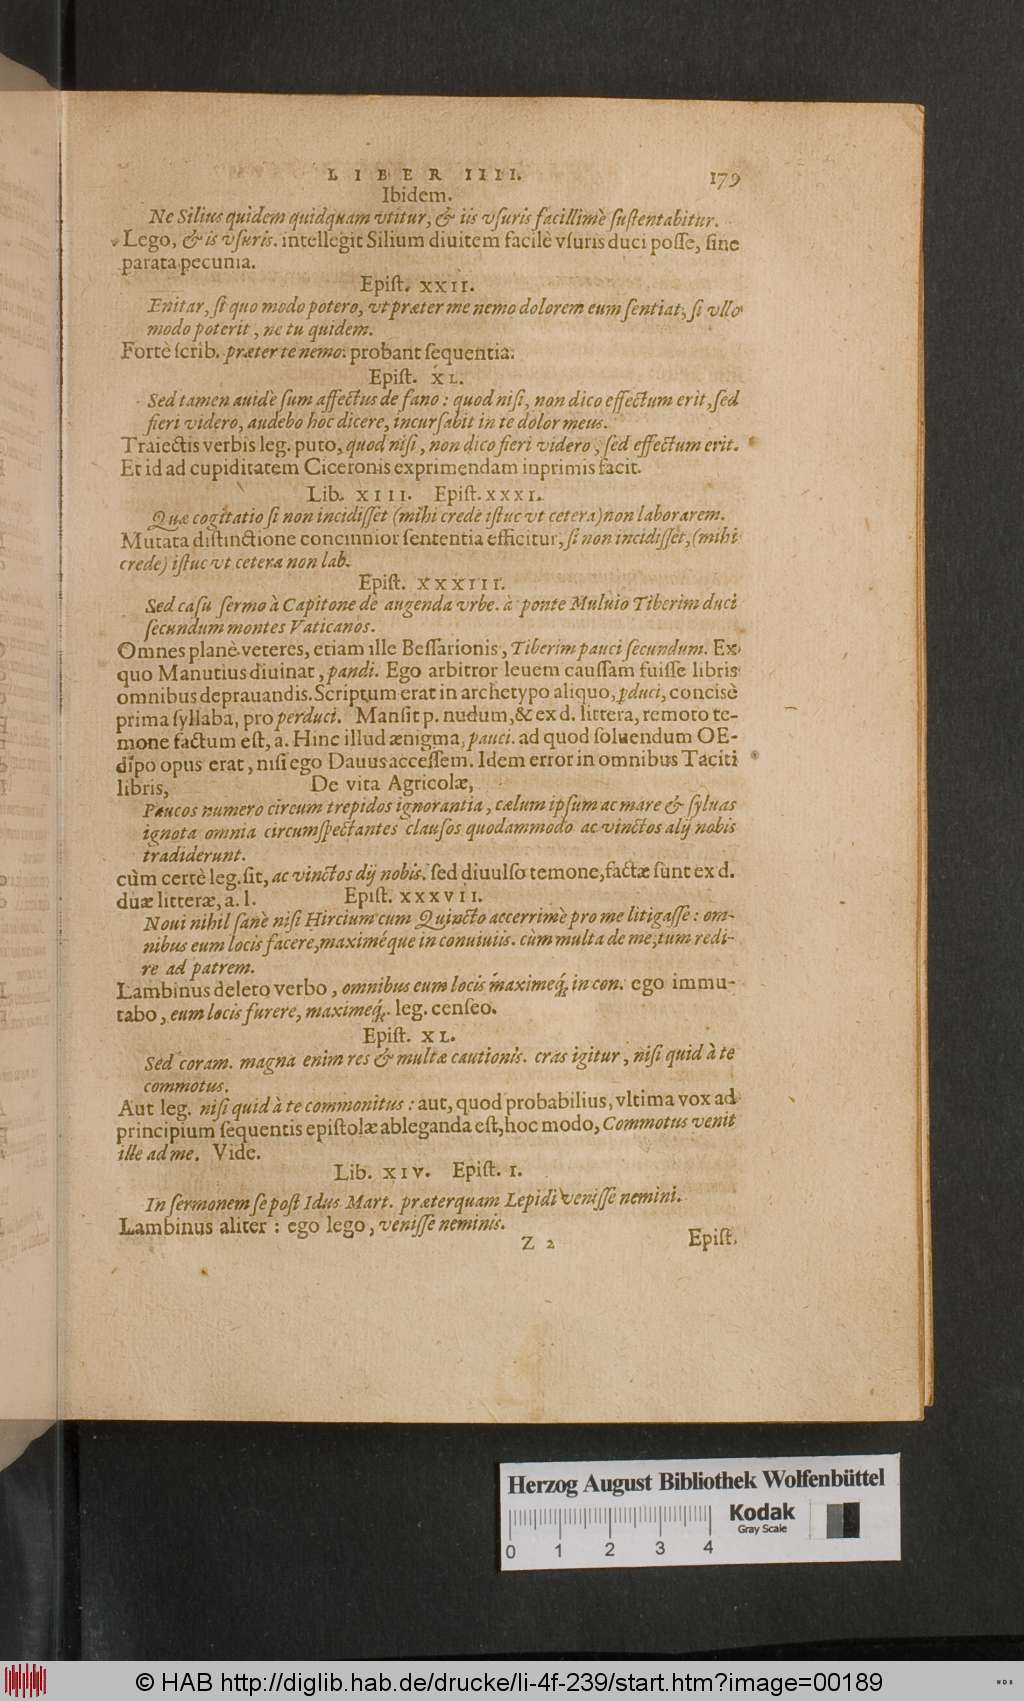 LIBER IIII. 179
Ibidem.
Ne Silius quidem quidquam vtitur, & iis vſuris facillimè ſuſtentabitur.
Lego, & is vſuris. intellegit Silium diuitem facilè vſuris duci poſſe, ſine
parata pecunia.
Epiſt. XXII.
Enitar, ſi quo modo potero, vt præter me nemo dolorem eum ſentiat, ſi vllo
modo poterit, ne tu quidem.
Fortè ſcrib. præter te nemo. probant ſequentia.
Epiſt. XL.
Sed tamen auidè ſum affectus de fano: quod niſi, non dico effectum erit, ſed
fieri videro, audebo hoc dicere, incurſabit in te dolor meus.
Traiectis verbis leg. puto, quod niſi, non dico fieri videro, ſed effectum erit.
Et id ad cupiditatem Ciceronis exprimendam inprimis facit.
Lib. XIII. Epiſt. XXXI.
Quæ cogitatio ſi non incidiſſet (mihi crede iſtuc vt cetera) non laborarem.
Mutata diſtinctione concinnior ſententia efficitur, ſi non incidiſſet, (mihi
crede) iſtuc vt cetera non lab.
Epiſt. XXXIII.
Sed caſu ſermo à Capitone de augenda vrbe. à ponte Muluio Tiberim duci
ſecundum montes Vaticanos.
Omnes planè veteres, etiam ille Beſſarionis, Tiberim pauci ſecundum. Ex
quo Manutius diuinat, pandi. Ego arbitror leuem cauſſam fuiſſe libris
omnibus deprauandis. Scriptum erat in archetypo aliquo, ꝑduci, conciſè
prima ſyllaba, pro perduci. Manſit p. nudum, & ex d. littera, remoto te-
mone factum eſt, a. Hinc illud ænigma, pauci. ad quod ſoluendum OE-
dipo opus erat, niſi ego Dauus acceſſem. Idem error in omnibus Taciti
libris, De vita Agricolæ,
Paucos numero circum trepidos ignorantia, cælum ipſum ac mare & ſyluas
ignota omnia circumſpectantes clauſos quodammodo ac vinctos alij nobis
tradiderunt.
cùm certè leg. ſit, ac vinctos dij nobis. ſed diuulſo temone, factæ ſunt ex d.
duæ litteræ, a. l. Epiſt. XXXVII.
Noui nihil ſanè niſi Hircium cum Quincto accerrimè pro me litigaſſe: om-
nibus eum locis facere, maximéque in conuiuiis. cùm multa de me, tum redi-
re ad patrem.
Lambinus deleto verbo, omnibus eum locis maximeq́; in con. ego immu-
tabo, eum locis furere, maximeq́;. leg. cenſeo.
Epiſt. XL.
Sed coram. magna enim res & multæ cautionis. cras igitur, niſi quid à te
commotus.
Aut leg. niſi quid à te commonitus: aut, quod probabilius, vltima vox ad
principium ſequentis epiſtolæ ableganda eſt, hoc modo, Commotus venit
ille ad me. Vide.
Lib. XIV. Epiſt. I.
In ſermonem ſe poſt Idus Mart. præterquam Lepidi veniſſe nemini.
Lambinus aliter: ego lego, veniſſe neminis.
Z 2 Epiſt.
Herzog August Bibliothek Wolfenbüttel
Kodak
Gray Scale
0 1 2 3 4
© HAB http://diglib.hab.de/drucke/li-4f-239/start.htm?image=00189